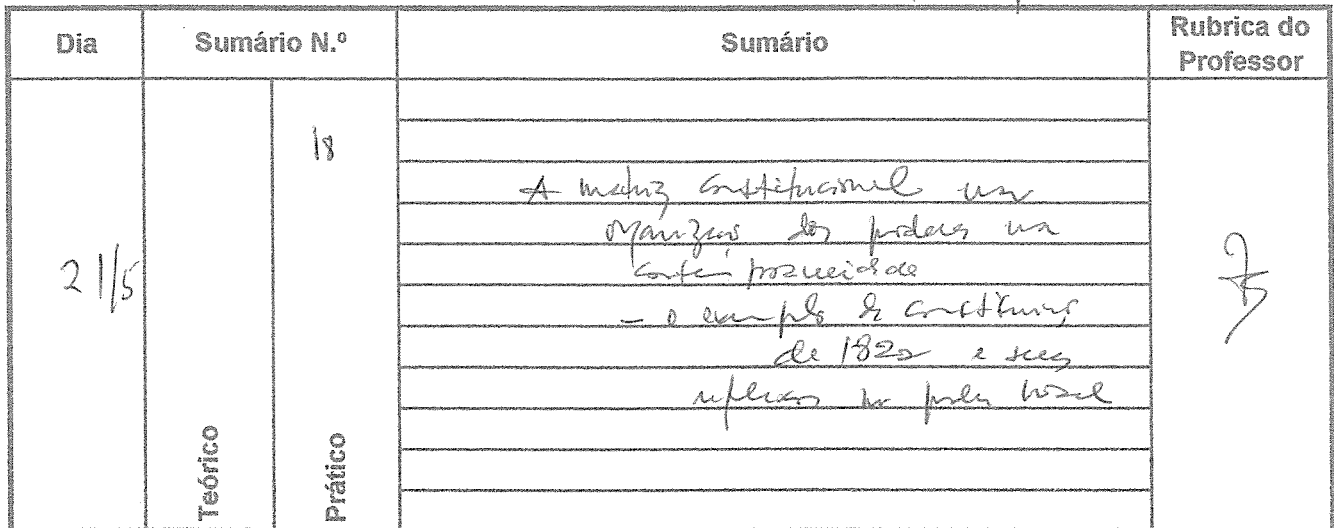 Dia Sumário N.º Sumário Rubrica do Professor
18
A matriz constitucional na
organização dos poderes na
contemporaneidade
21/5
- o exemplo da Constituição
de 1822 e seus
reflexos no poder local
Teórico
Prático